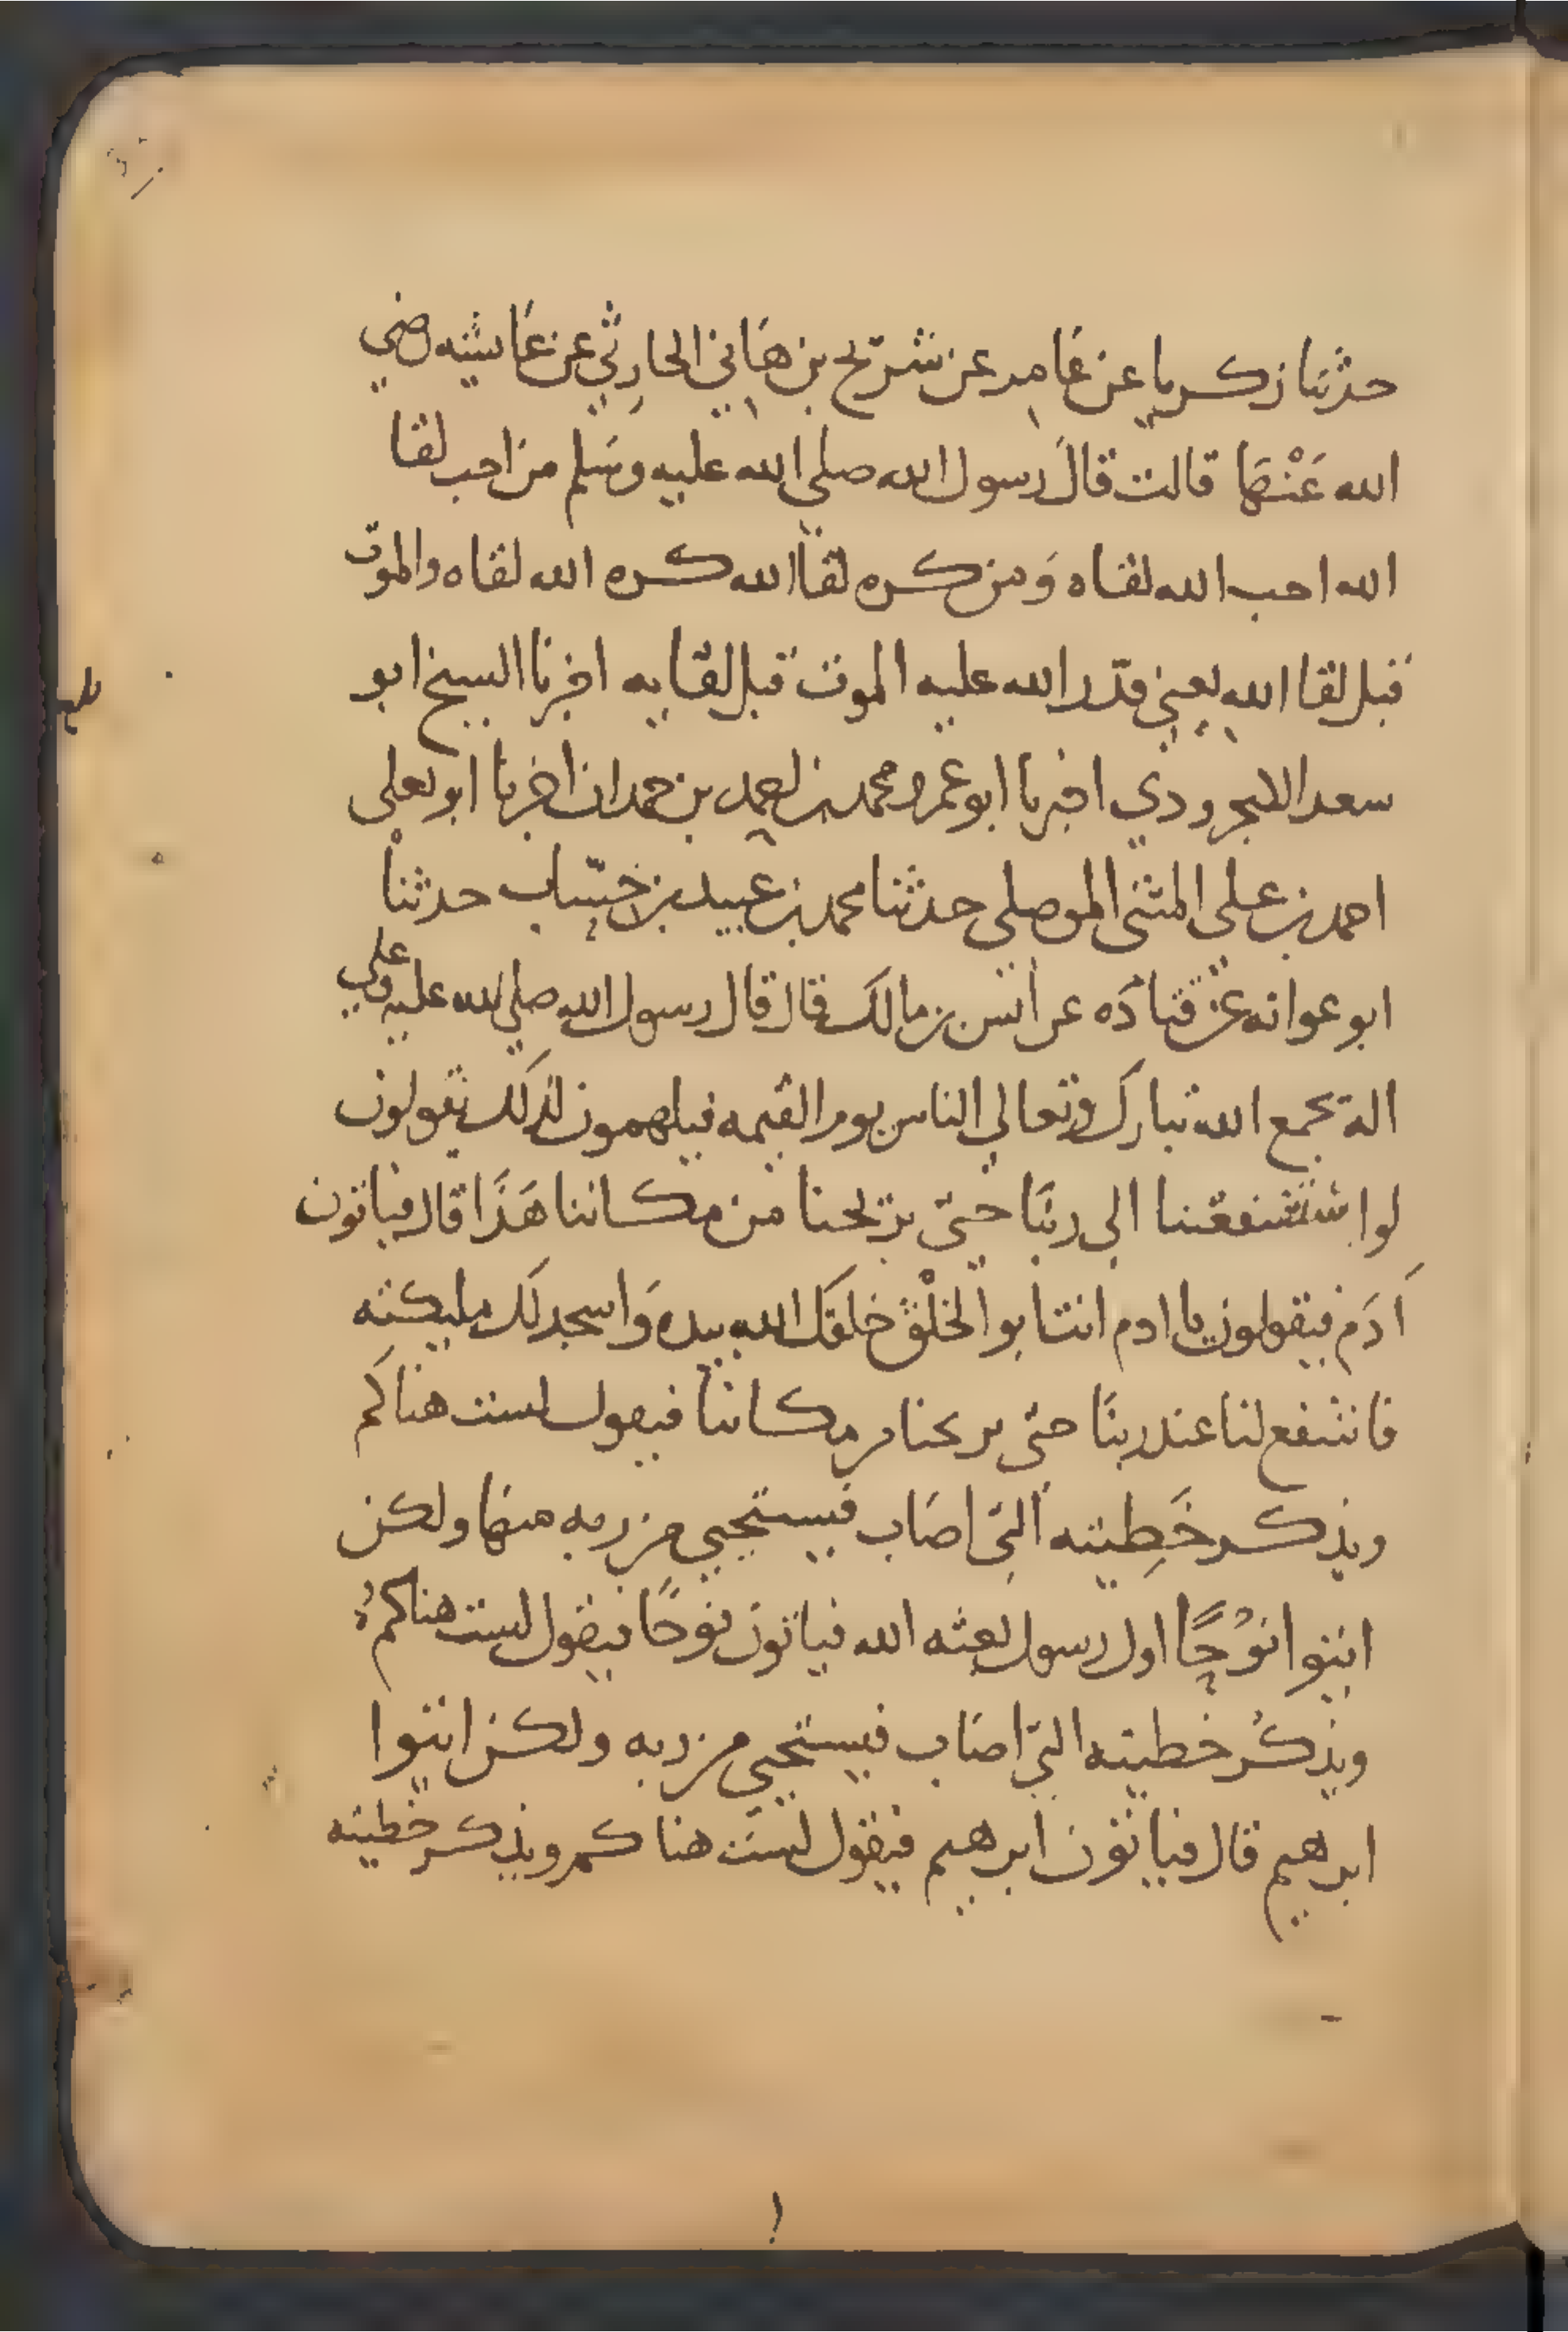 حدثنا زكريا عن عامر عن شريح بن هاني الحارثي عن عايشه رضي
الله عَنْهَا قالت قال رسول الله صلي الله عليه وسلم من احب لقا
الله احب الله لقاه وَمن كره لقا الله كره الله لقاه والموت
قبل لقا الله يعني قدّر الله عليه الموت قبل لقايه اخبرنا الشيخ ابو
سعد الجرودي اخبرنا ابو عمرو محمد بن احمد بن حمدان اخبرنا ابو يعلي
احمد بن علي المثنى الموصلي حدثنا محمد بن عبيد بن حسّاب حدثنا
ابو عوانه عن قتادَه عن انس بن مالك قال قال رسول الله صلي الله عليه وعلي
اله يجمع الله تبارك وتعالي الناس يوم القيمه فيلهمون لذلك يقولون
لو استشفعنا الى ربّنَا حتيّ يريحنا من مكاننا هَذَا قال فياتون
اَدَم فيقولون يا ادم انت ابو الخلْق خلقَك الله بيده وَاسجد لَك مليكته
فاشفع لنا عند ربنَّا حتي يريحنا من مكاننا فيقول لست هناكم
ويذكر خَطِيته التي اصَاب فيستحيي من ربه منها ولكن
ائتوا نوْحًا اول رسول بعثه الله فياتون نوحًا فيقول لست هناكم
ويذكُر خطيته التي اصَاب فيستحيي من ربه ولكن ائتوا
ابرهيم قال فياتون ابرهيم فيقول لست هناكم ويذكر خطيته